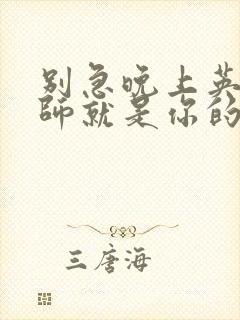 别急晚上英
师就是你的
三唐海